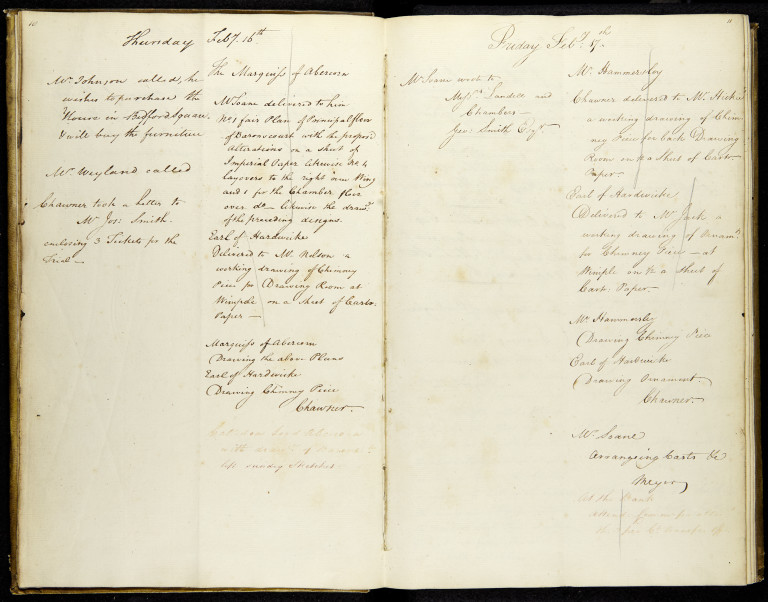 10
Thursday Feby. 16th.
Mr. Johnson called, he
wishes to purchase the
House in Bedford Square
& will buy the furniture
Mr. Weyland called
Chawner took a letter to
Mr. Jos: Smith
enclosing 3 Tickets for the
Trial—
The Marquiss of Abercorn
Mr Soane delivered to him
No 1 fair Plan of Principal floor
of Baronscourt with the propos'd
alterations on a sheet of
Imperial Paper likewise No 4
layovers to the right arm Wing
and 1 for the Chamber floor
over do— likewise the draws.
of the preceding designs.
Earl of Hardwicke
Delivered to Mr. Nelson a
working drawing of Chimney
Piece for Drawing Room at
Wimpole on a sheet of Carto.
Paper—
Marquiss of Abercorn
Drawing the above Plans
Earl of Hardwicke
Drawing Chimney Piece
Chawner.
Lord Abercorn
with draws. of
left sundry Sketches
11
Friday Feby. 17th.
Mr Soane wrote to
Messrs Sandell and
Chambers—
Geo: Smith Esqr.
Mr. Hammersley
Chawner delivered to Mr. Hickie
a working drawing of Chim-
ney Piece for back Drawing
Room on ½ a Sheet of Cart.
Paper.
Earl of Hardwicke
Delivered to Mr. Jack a
working drawing of Ornamt.
for Chimney Piece—at
Wimple on ½ a sheet of
Cart. Paper.
Mr Hammersley
Drawing Chimney Piece
Earl of Hardwicke
Drawing Ornament
Chawner.
Mr. Soane
Arrangeing Casts &c
Meyer
At the Bank